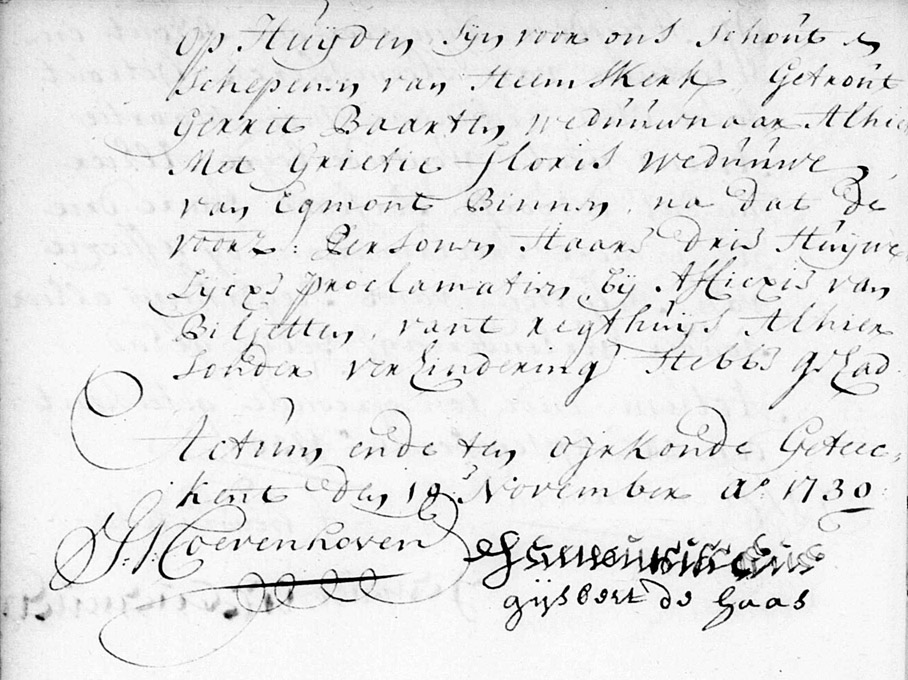 Op Huijden Sijn voor ons Schout en
Schepenen van Heemskerk Getrout
Gerrit Baarten weduwnaar Alhier
Met Grietie Floris weduwe
van Egmont Binnen, na dat de
voorz: Personen Haare drie Huijwe,
Lijcxe proclamatien bij Affiexie van
Biljetten vant regthuijs Alhier
Sonder verhindering Hebbe gehad
Actum ende ten oijrkonde Geteec,
kent den 19 November Ao 1730
Coevenhoven
gijsbert de haas